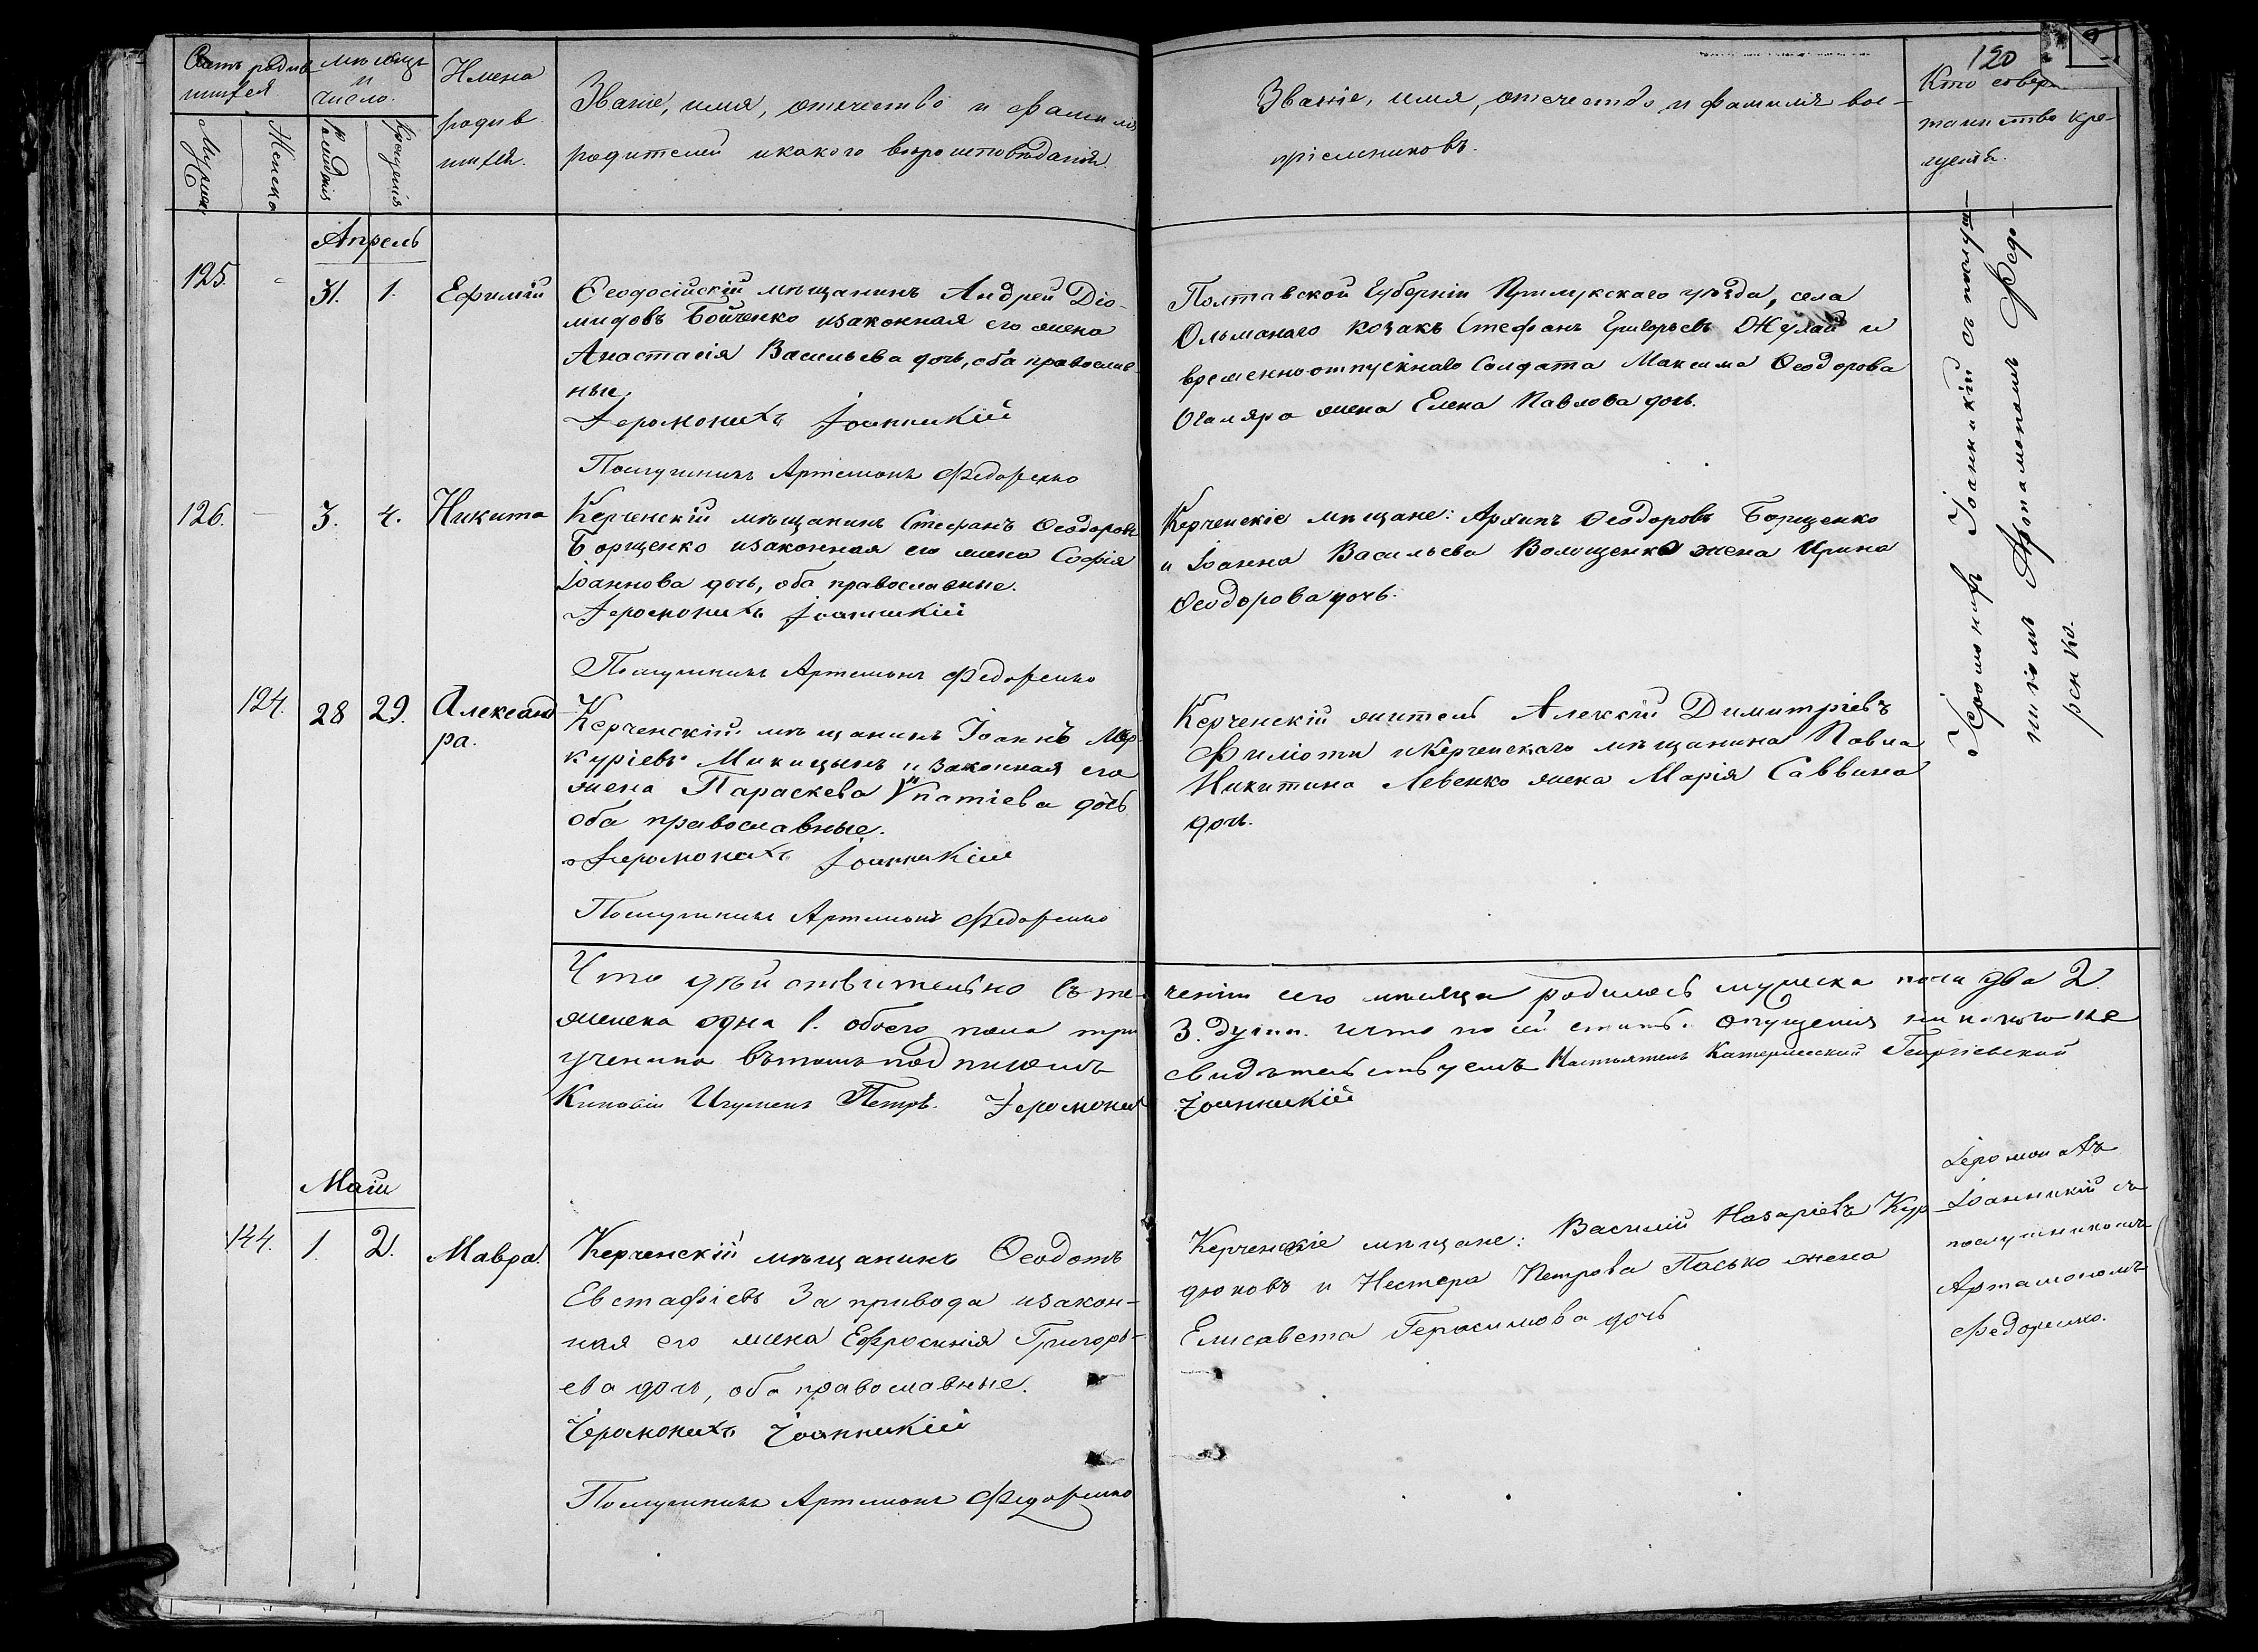 120
Счетъ родив-
шихся
Мѣсяцъ
и
число.
Имена
родив
шихся.
Званіе, имя, отечество и фамилія
родителей и какого вѣроисповѣданія.
Званіе, имя, отечество и фамилія вос-
пріемниковъ.
Кто совер
таинство кре-
щенія.
Мужеска
Женска
Рожденія
Крещенія
Апрель
125.
31.
1.
Ефимій
Ѳеодосійскій мѣщанинъ Андрей Діо-
мидовъ Бойченко и законная его жена
Анастасія Васильева дочь, оба православ-
ные.
Іеромонахъ Іоанникій
Послушникъ Артемонъ Федоренко
Полтавской Губерніи Прилукскаго уѣзда, села
Ольманаго козакъ Стефанъ Григорьевъ Жулай и
временноотпускнаго Солдата Максима Ѳеодорова
жена Елена Павлова дочь.
126.
3.
4.
Никита
Керченскій мѣщанинъ Стефанъ Ѳеодоровъ
Борщенко и законная его жена Софія
Іоаннова дочь, оба православные.
Іеромонахъ Іоанникій
Послушникъ Артемонъ Федоренко
Керченскіе мѣщане: Архипъ Ѳеодоровъ Борщенко
и Іоанна Васильева Волощенко жена Ирина
Ѳеодорова дочь.
124.
28
29.
Александ
ра.
Керченскій мѣщанинъ Іоаннъ Мер-
куріевъ Микицынъ и законная его
жена Параскева Ѵпатіева дочь
оба православные.
Іеромонахъ Іоанникій
Послушникъ Артемонъ Федоренко
Керченскій житель Алексій Димитріевъ
Филіоти и Керченскаго мѣщанина Павла
Никитина Левенко жена Марія Саввина
дочь.
Іеромонахъ Іоанникій съ послуш-
никомъ Артамономъ Федо-
ренко.
Что дѣйствительно въ те- ченіи сего мѣсяца родилось мужеска пола два 2.
женска одна 1. обоего пола три 3. души. и что по сей опущенія никакого не
учинено въ томъ подписомъ свидѣтельствуемъ Настоятель Катерлесской Георгіевской
Киновіи Игуменъ Петръ. Іеромонахъ Іоанникій
Маій
144.
1.
2.
Мавра.
Керченскій мѣщанинъ Ѳеодотъ
Евстафіевъ Запривода и закон-
ная его жена Ефросинія Григорь-
ева дочь, оба православные.
Іеромонахъ Іоанникій
Послушникъ Артемонъ Федоренко
Керченскіе мѣщане: Василій Назаріевъ Кур
дюковъ и Нестера Петрова Пасько жена
Елисавета Герасимова дочь
Іеромонахъ
Іоанникій съ
послушникомъ
Артамономъ
Федоренко.